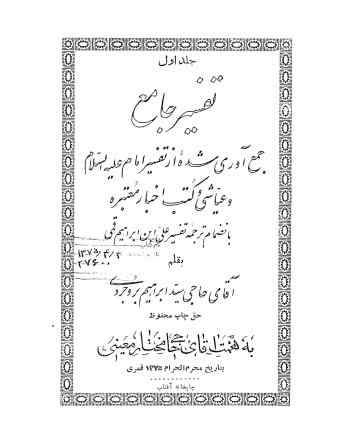 جلد اول
تفسیر جامع
جمع آوری شده از تفسیر امام علیه السلام
و عیاشی و کتب اخبار معتبره
بانضمام ترجمه تفسیر علی ابن ابراهیم قمی
بقلم
آقای حاجی سید ابراهیم بروجردی
حق چاپ محفوظ
به همت آقای حاج مختار معینی
بتاریخ محرم الحرام ۱۳۷۵ قمری
چاپخانه آفتاب